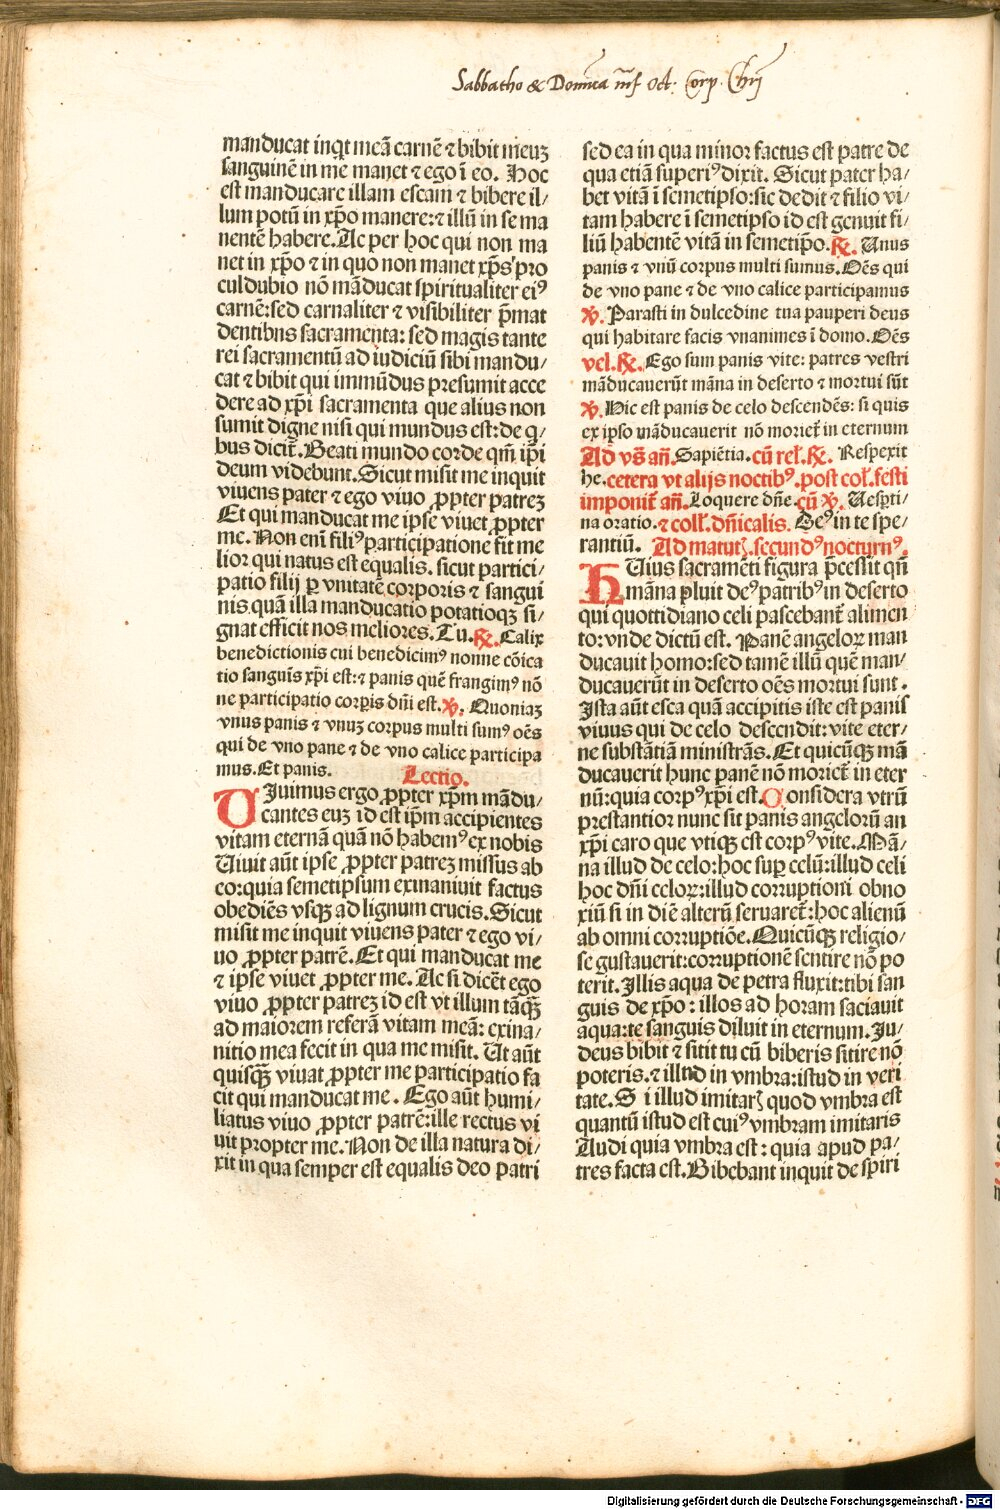 Sabbatho & Domīnca īnf Oct. Corp. Chrī
manducat inqͥt meā carnē ⁊ bibit meuꝫ
sanguinē in me manet ⁊ ego ī eo. Hoc
est manducare illam escam ⁊ bibere il/
lum potū in xp̄o manere:⁊ illū in se ma
nentē habere. Ac per hoc qui non ma
net in xp̄o ⁊ in quo non manet xp̄s pro
culdubio nō māducat spiritualiter eiꝰ
carnē:sed carnaliter ⁊ visibiliter p̄mat
dentibus sacramenta: sed magis tante
rei sacramentū ad iudiciū sibi mandu/
cat ⁊ bibit qui immūdus presumit acce
dere ad xp̄i sacramenta que alius non
sumit digne nisi qui mundus est:de qͥ/
bus dicit̄. Beati mundo corde qm̄ ip̄i
deum videbunt. Sicut misit me inquit
viuens pater ⁊ ego viuo ꝓpter patreꝫ
Et qui manducat me ipse viuet ꝓpter
me. Non eni filiꝰ participatione fit me
lior qui natus est equalis. sicut partici/
patio filij ꝑ vnitatē corporis ⁊ sangui
nis.quā illa manducatio potatioqꝫ si/
gnat efficit nos meliores. Tu. ℟. Calix
benedictionis cui benedicimꝰ nonne cōica
tio sanguīs xp̄i est:⁊ panis quē frangimꝰ nō
ne participatio corꝑis dn̄i est. ℣. Quoniaꝫ
vnus panis ⁊ vnuꝫ corpus multi sumꝰ oēs
qui de vno pane ⁊ de vno calice participa
mus. Et panis. Lectio.
UIuimus ergo ꝓpter xp̄m mādu/
cantes euꝫ id est ip̄m accipientes
vitam eternā quā nō habemꝰ ex nobis
Uiuit aūt ipse ꝓpter patreꝫ missus ab
eo:quia semetipsum exinaniuit factus
obediēs vsqꝫ ad lignum crucis. Sicut
misit me inquit viuens pater ⁊ ego vi/
uo ꝓpter patrē. Et qui manducat me
⁊ ipse viuet ꝓpter me. Ac si diceret ego
viuo ꝓpter patreꝫ id est vt illum tāqꝫ
ad maiorem referā vitam meā: exina/
nitio mea fecit in qua me misit. Ut aūt
quisqꝫ viuat ꝓpter me participatio fa
cit qui manducat me. Ego aūt humi/
liatus viuo ꝓpter patrē:ille rectus vi
uit propter me. Non de illa natura di/
xit in qua semper est equalis deo patri
sed ea in qua minor factus est patre de
qua etiā superiꝰ dixit. Sicut pater ha/
bet vitā ī semetipso:sic dedit ⁊ filio vi/
tam habere ī semetipso id est genuit fi/
liū habentē vitā in semetip̄o. ℟. Unus
panis ⁊ vnū corpus multi sumus. Oēs qui
de vno pane ⁊ de vno calice participamus
℣. Parasti in dulcedine tua pauperi deus
qui habitare facis vnanimes ī domo. Oēs
vel. ℟. Ego sum panis vite: patres vestri
māducauerūt māna in deserto ⁊ mortui sūt
℣. Hic est panis de celo descendēs: si quis
ex ipso māducauerit nō moriet̄ in eternum
Ad vs̄ añ. Sapiētia. cū rel̄. ℟. Respexit
he. cetera vt alijs noctibꝰ. post col̄. festi
imponit̄ añ. Loquere dn̄e. cū ℣. Uesꝑti/
na oratio. ⁊ coll̄. dn̄icalis. Deꝰ in te spe/
rantiū. Ad matut̄. secundꝰ nocturnꝰ.
HUius sacramēti figura p̄cessit qn̄
māna pluit deꝰ patribꝰ in deserto
qui quottidiano celi pascebant̄ alimen
to:vnde dictū est. Panē angeloꝝ man
ducauit homo:sed tamē illū quē man/
ducauerūt in deserto oēs mortui sunt.
Ista aūt esca quā accipitis iste est panis
viuus qui de celo descendit:vite eter/
ne substātiā ministrās. Et quicūqꝫ mā
ducauerit hunc panē nō moriet̄ in eter
nū:quia corpꝰ xp̄i est. Considera vtrū
prestantior nunc sit panis angelorū an
xp̄i caro que vtiqꝫ est corpꝰ vite. Mā/
na illud de celo:hoc suꝑ celū:illud celi
hoc dn̄i celoꝝ:illud corruptioni obno
xiū si in diē alterū seruaret̄:hoc alienū
ab omni corruptiōe. Quicūqꝫ religio/
se gustauerit:corruptionē sentire nō po
terit. Illis aqua de petra fluxit:tibi san
guis de xp̄o: illos ad horam saciauit
aqua:te sanguis diluit in eternum. Iu/
deus bibit ⁊ sitit tu cū biberis sitire nō
poteris.⁊ illud in vmbra:istud in veri
tate. Si illud imitar̄ quod vmbra est
quantū istud est cuiꝰ vmbram imitaris
Audi quia vmbra est: quia apud pa/
tres facta est. Bibebant inquit de spiri
Digitalisierung gefördert durch die Deutsche Forschungsgemeinschaft - DFG